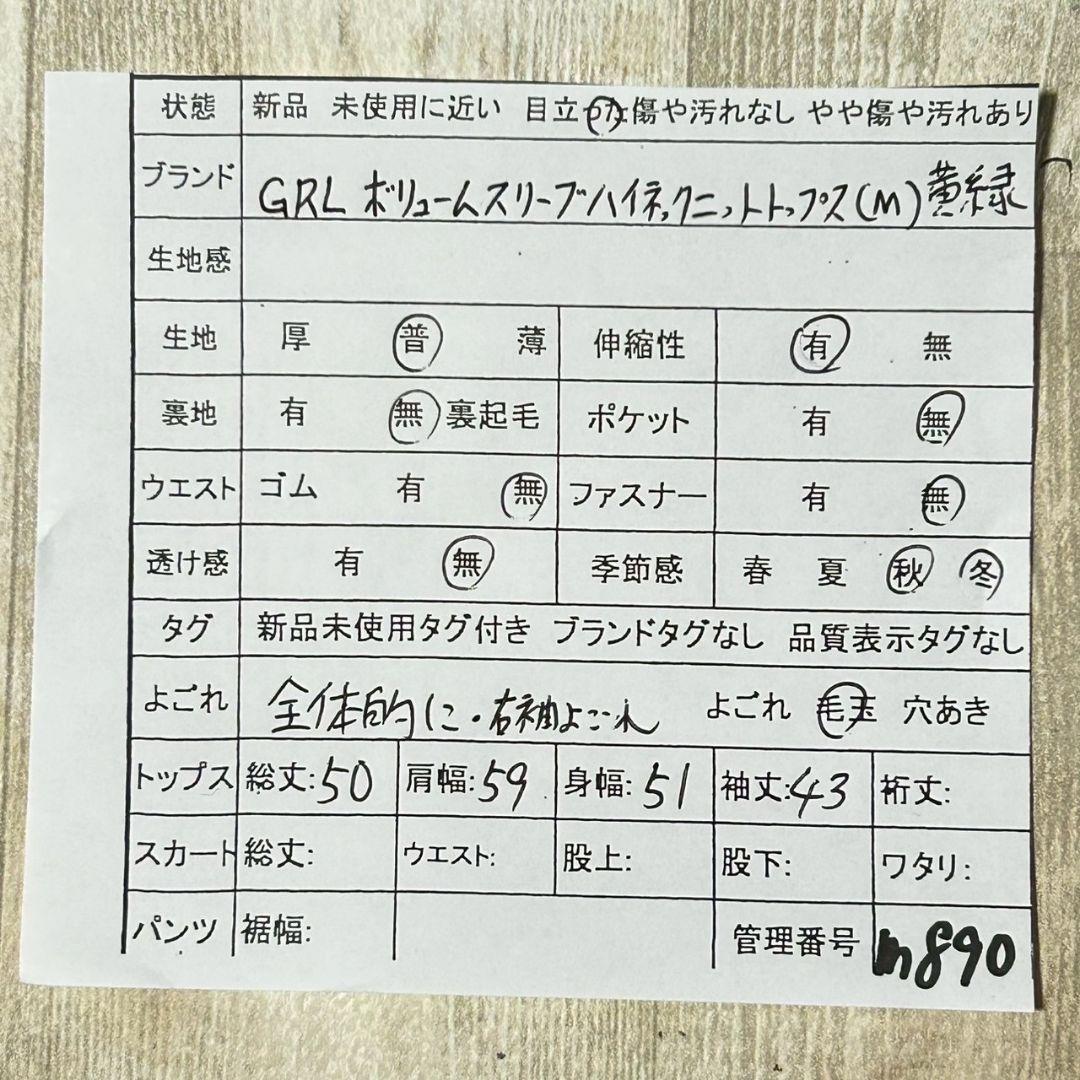 状態 新品 未使用に近い 目立った傷や汚れなし やや傷や汚れあり
ブランド GRL ボリュームスリーブハイネックニットトップス(M) 黄緑
生地感
生地 厚 普 薄 伸縮性 有 無
裏地 有 無 裏起毛 ポケット 有 無
ウエスト ゴム 有 無 ファスナー 有 無
透け感 有 無 季節感 春 夏 秋 冬
タグ 新品未使用タグ付き ブランドタグなし 品質表示タグなし
よごれ 全体的に・右袖よごれ よごれ 毛玉 穴あき
トップス 総丈:50 肩幅:59 身幅:51 袖丈:43 裄丈:
スカート 総丈: ウエスト: 股上: 股下: ワタリ:
パンツ 裾幅: 管理番号 m890